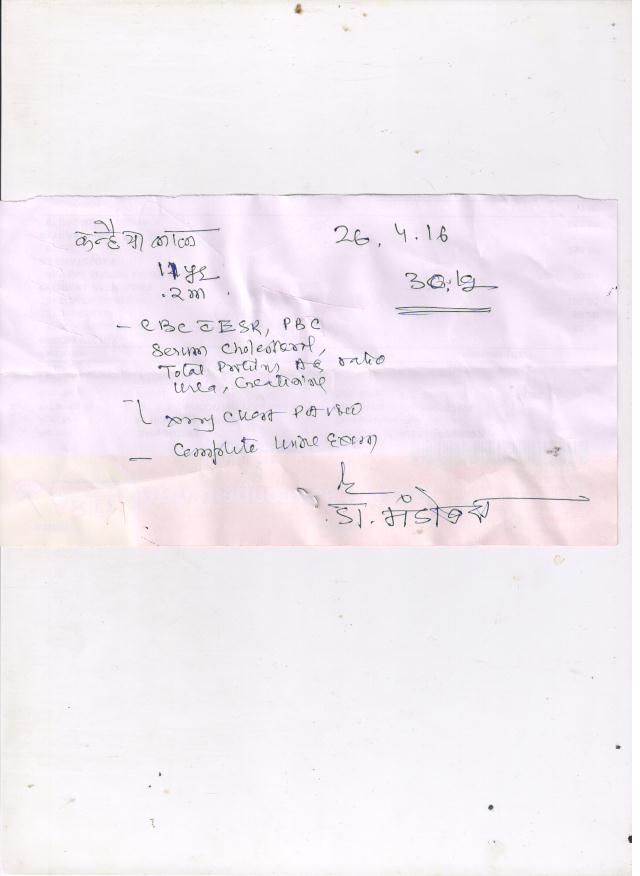 कन्हैया लाल
26.4.16
11 yr
2m
- CBC c̄ ESR, PBC
Serum Cholesterol,
Total Proteins AG ratio
Urea, Creatinine
xray Chest PA view
- Complete Urine Exam
डा.